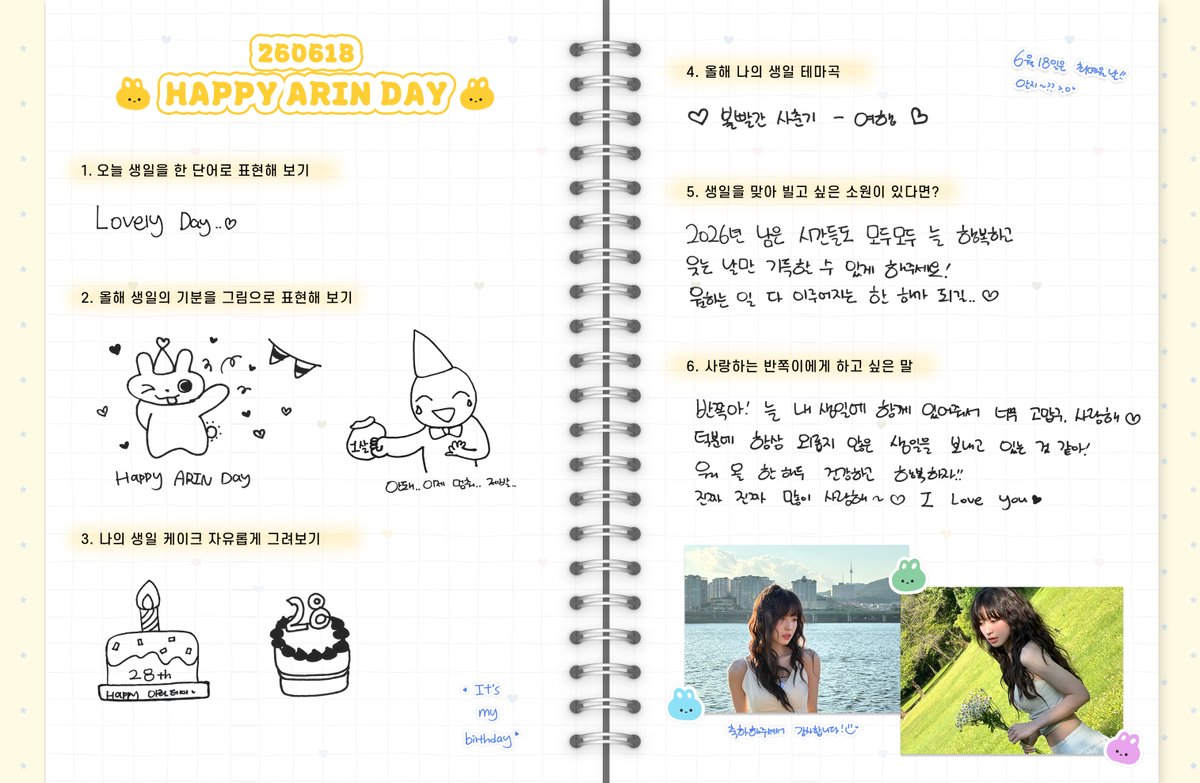 260618
HAPPY ARIN DAY
1. 오늘 생일을 한 단어로 표현해 보기
Lovely Day..♡
2. 올해 생일의 기분을 그림으로 표현해 보기
Happy ARIN Day
안돼..이제 멈춰.. 제발..
3. 나의 생일 케이크 자유롭게 그려보기
28th
Happy 아린데이~
28
It's
my
birthday
6월 18일은 최예원 날!!
알지~??
4. 올해 나의 생일 테마곡
♡ 볼빨간 사춘기 - 여행 ♡
5. 생일을 맞아 빌고 싶은 소원이 있다면?
2026년 남은 시간들도 모두모두 늘 행복하고
웃는 날만 가득할 수 있게 해주세요!
원하는 일 다 이루어지는 한 해가 되길.. ♡
6. 사랑하는 반쪽이에게 하고 싶은 말
반쪽아! 늘 내 생일에 함께 있어줘서 너무 고맙구, 사랑해♡
덕분에 항상 외롭지 않은 생일을 보내고 있는 것 같아!
우리 올 한 해두 건강하고 행복하자!!
진짜 진짜 많이 사랑해~♡ I Love you♥
축하해주셔서 감사합니다!